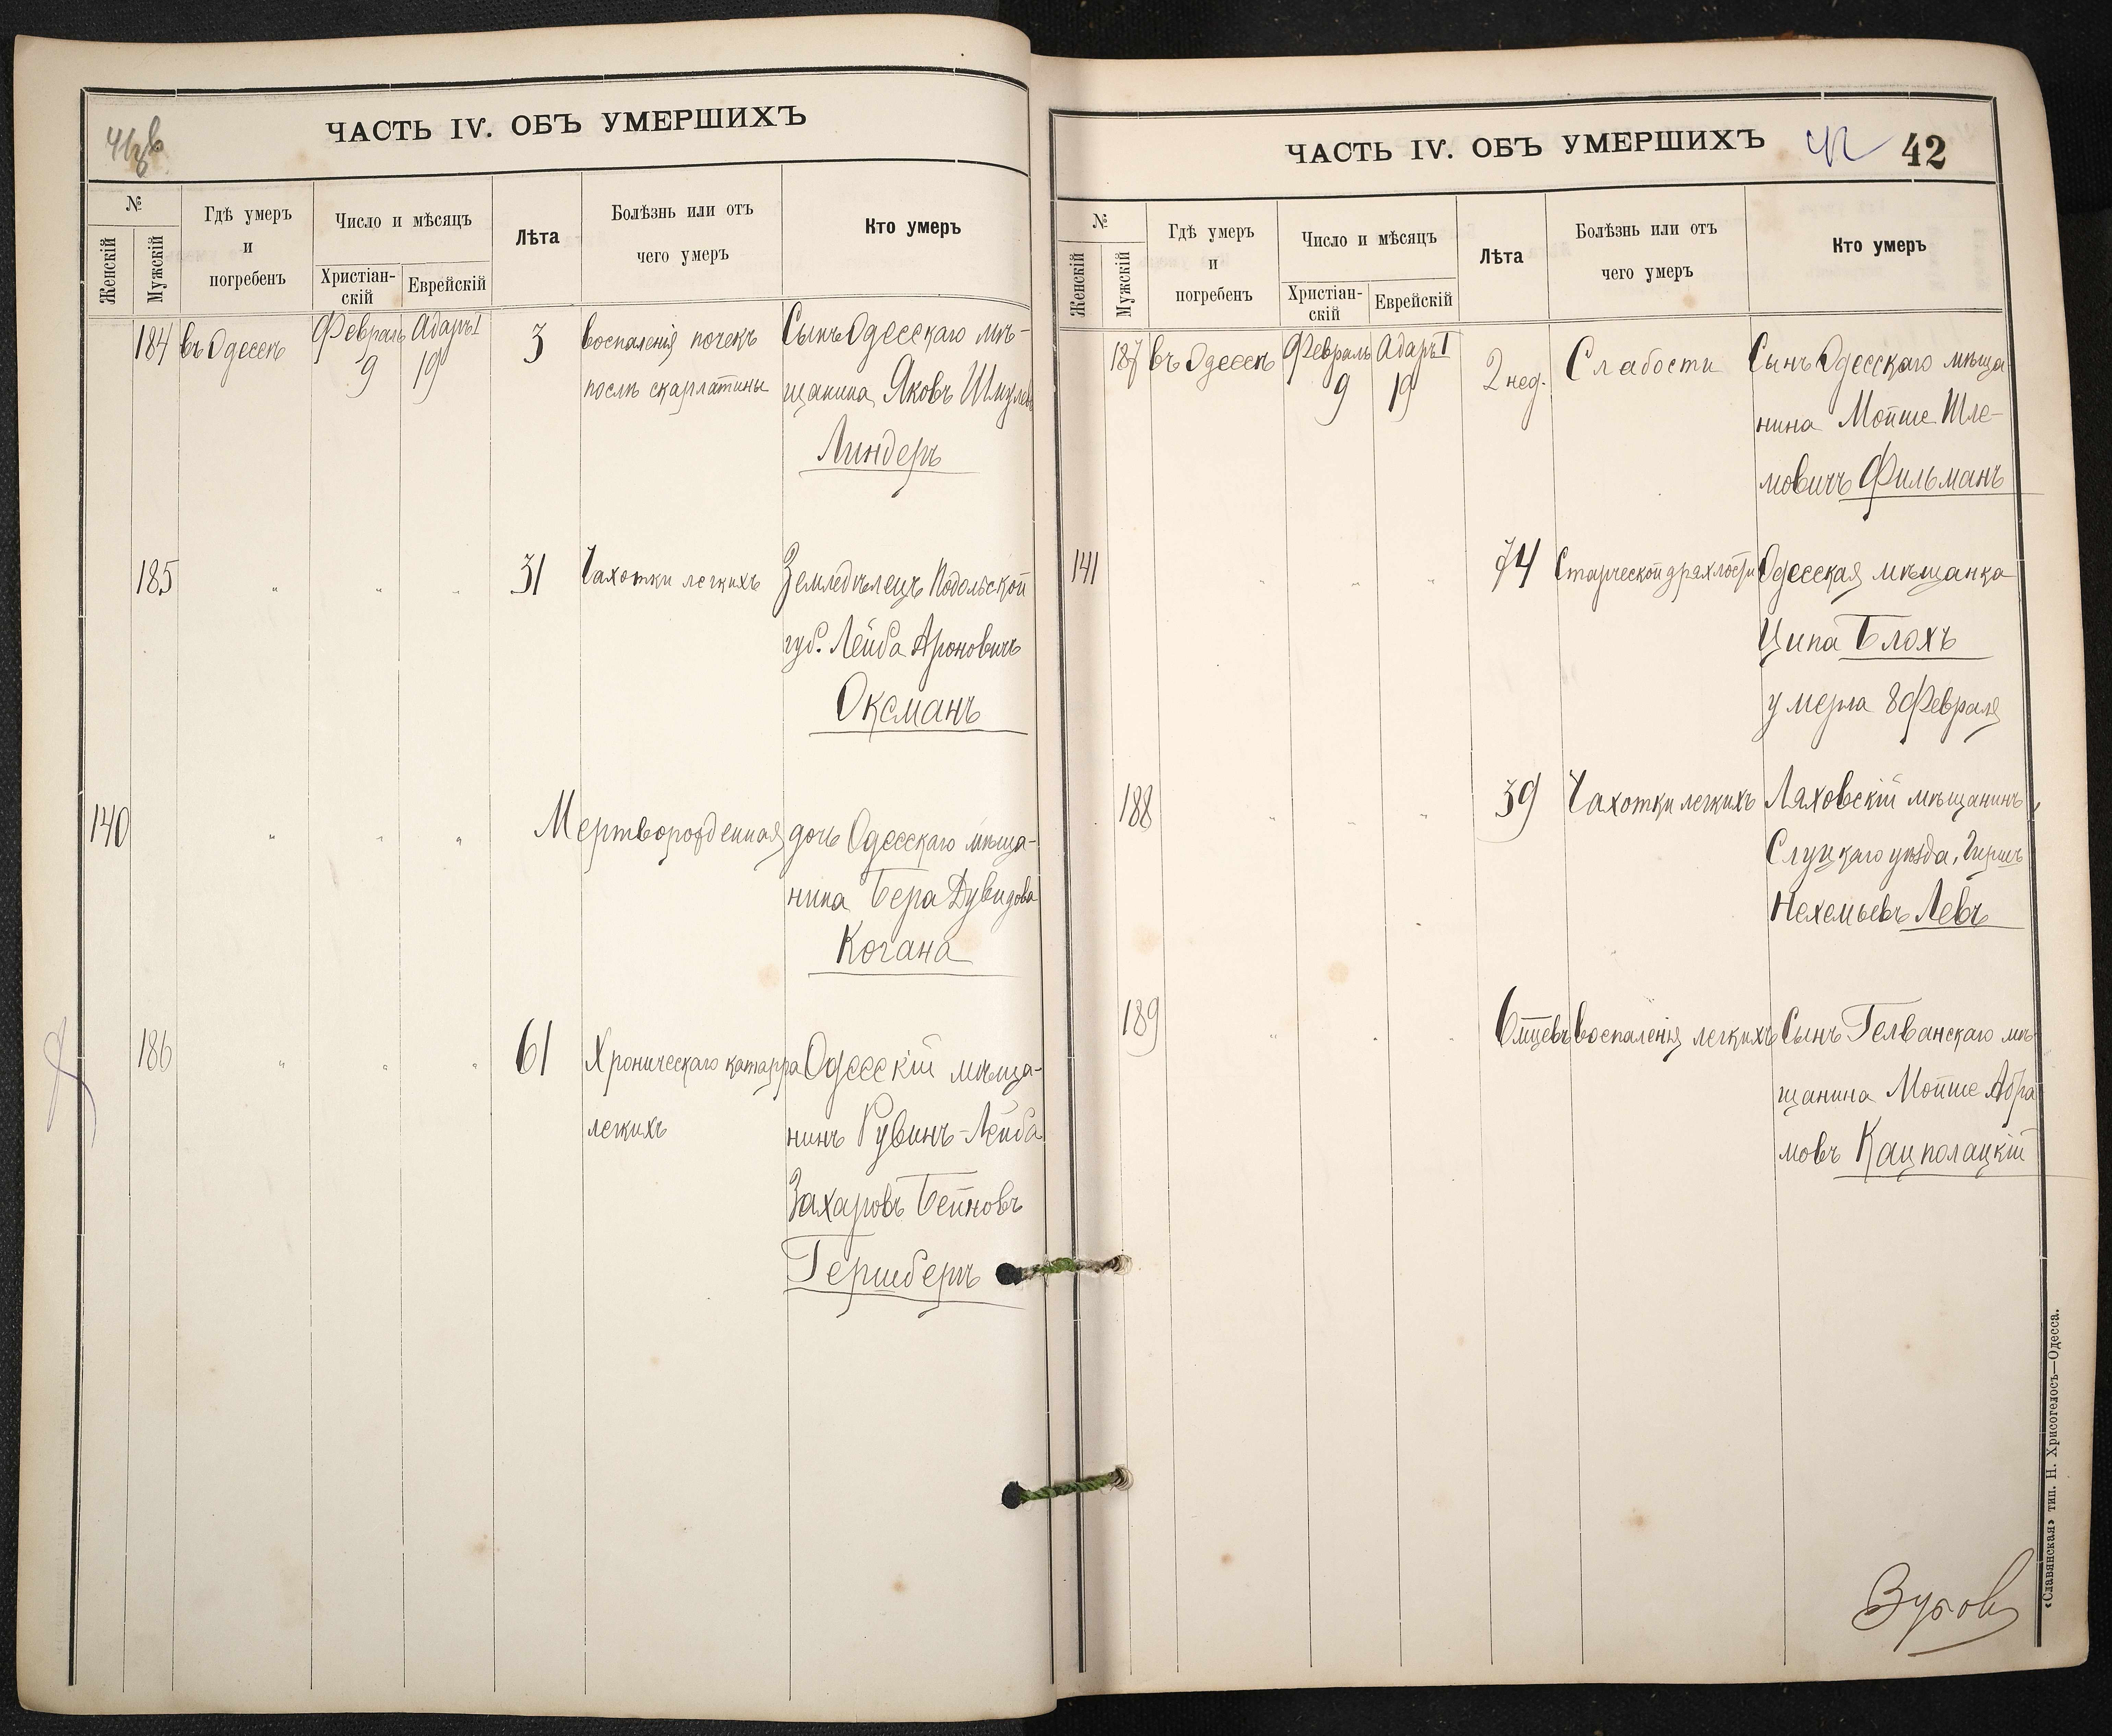 ЧАСТЬ IV. ОБЪ УМЕРШИХЪ
№
Женскій
Мужскій
Гдѣ умеръ
и
погребенъ
Число и мѣсяцъ
Христіан-
скій
Еврейскій
Лѣта
Болѣзнь или отъ
чего умеръ
Кто умеръ
184 въ Одессѣ Февраль Адаръ I 3 воспаленія почекъ Сынъ Одесскаго мѣ-
9 19 послѣ скарлатины щанина Яковъ Шмулев
Линдеръ
185 " " " 31 Чахотки легкихъ Земледѣлецъ Подольской
губ. Лейба Ароновичъ
Оксманъ
140 " " " Мертворожденная дочь Одесскаго мѣща-
нина Бера Дувидова
Когана
186 " " " 61 Хроническаго катарра Одесскій мѣща-
легкихъ нинъ Рувинъ-Лейба
Захаровъ Бейновъ
Гершбергъ
ЧАСТЬ IV. ОБЪ УМЕРШИХЪ 42 42
№
Женскій
Мужскій
Гдѣ умеръ
и
погребенъ
Число и мѣсяцъ
Христіан-
скій
Еврейскій
Лѣта
Болѣзнь или отъ
чего умеръ
Кто умеръ
187 въ Одессѣ Февраль Адаръ I 2 нед. Слабости Сынъ Одесскаго мѣща
9 19 нина Мойше Шле-
мовичъ Фильманъ
141 " " " 74 Старческой дряхлости Одесская мѣщанка
Ципа Блохъ
умерла 8 Февраля
188 " " " 39 Чахотки легкихъ Ляховскій мѣщанинъ,
Слуцкаго уѣзда, Гиршъ
Нехемьевъ Левъ
189 " " " 6 мѣсцевъ воспаленія легкихъ Сынъ Гелванскаго мѣ-
щанина Мойше Абра
мовъ Кацполацкій
«Славянская» тип. Н. Хрисогелосъ—Одесса.